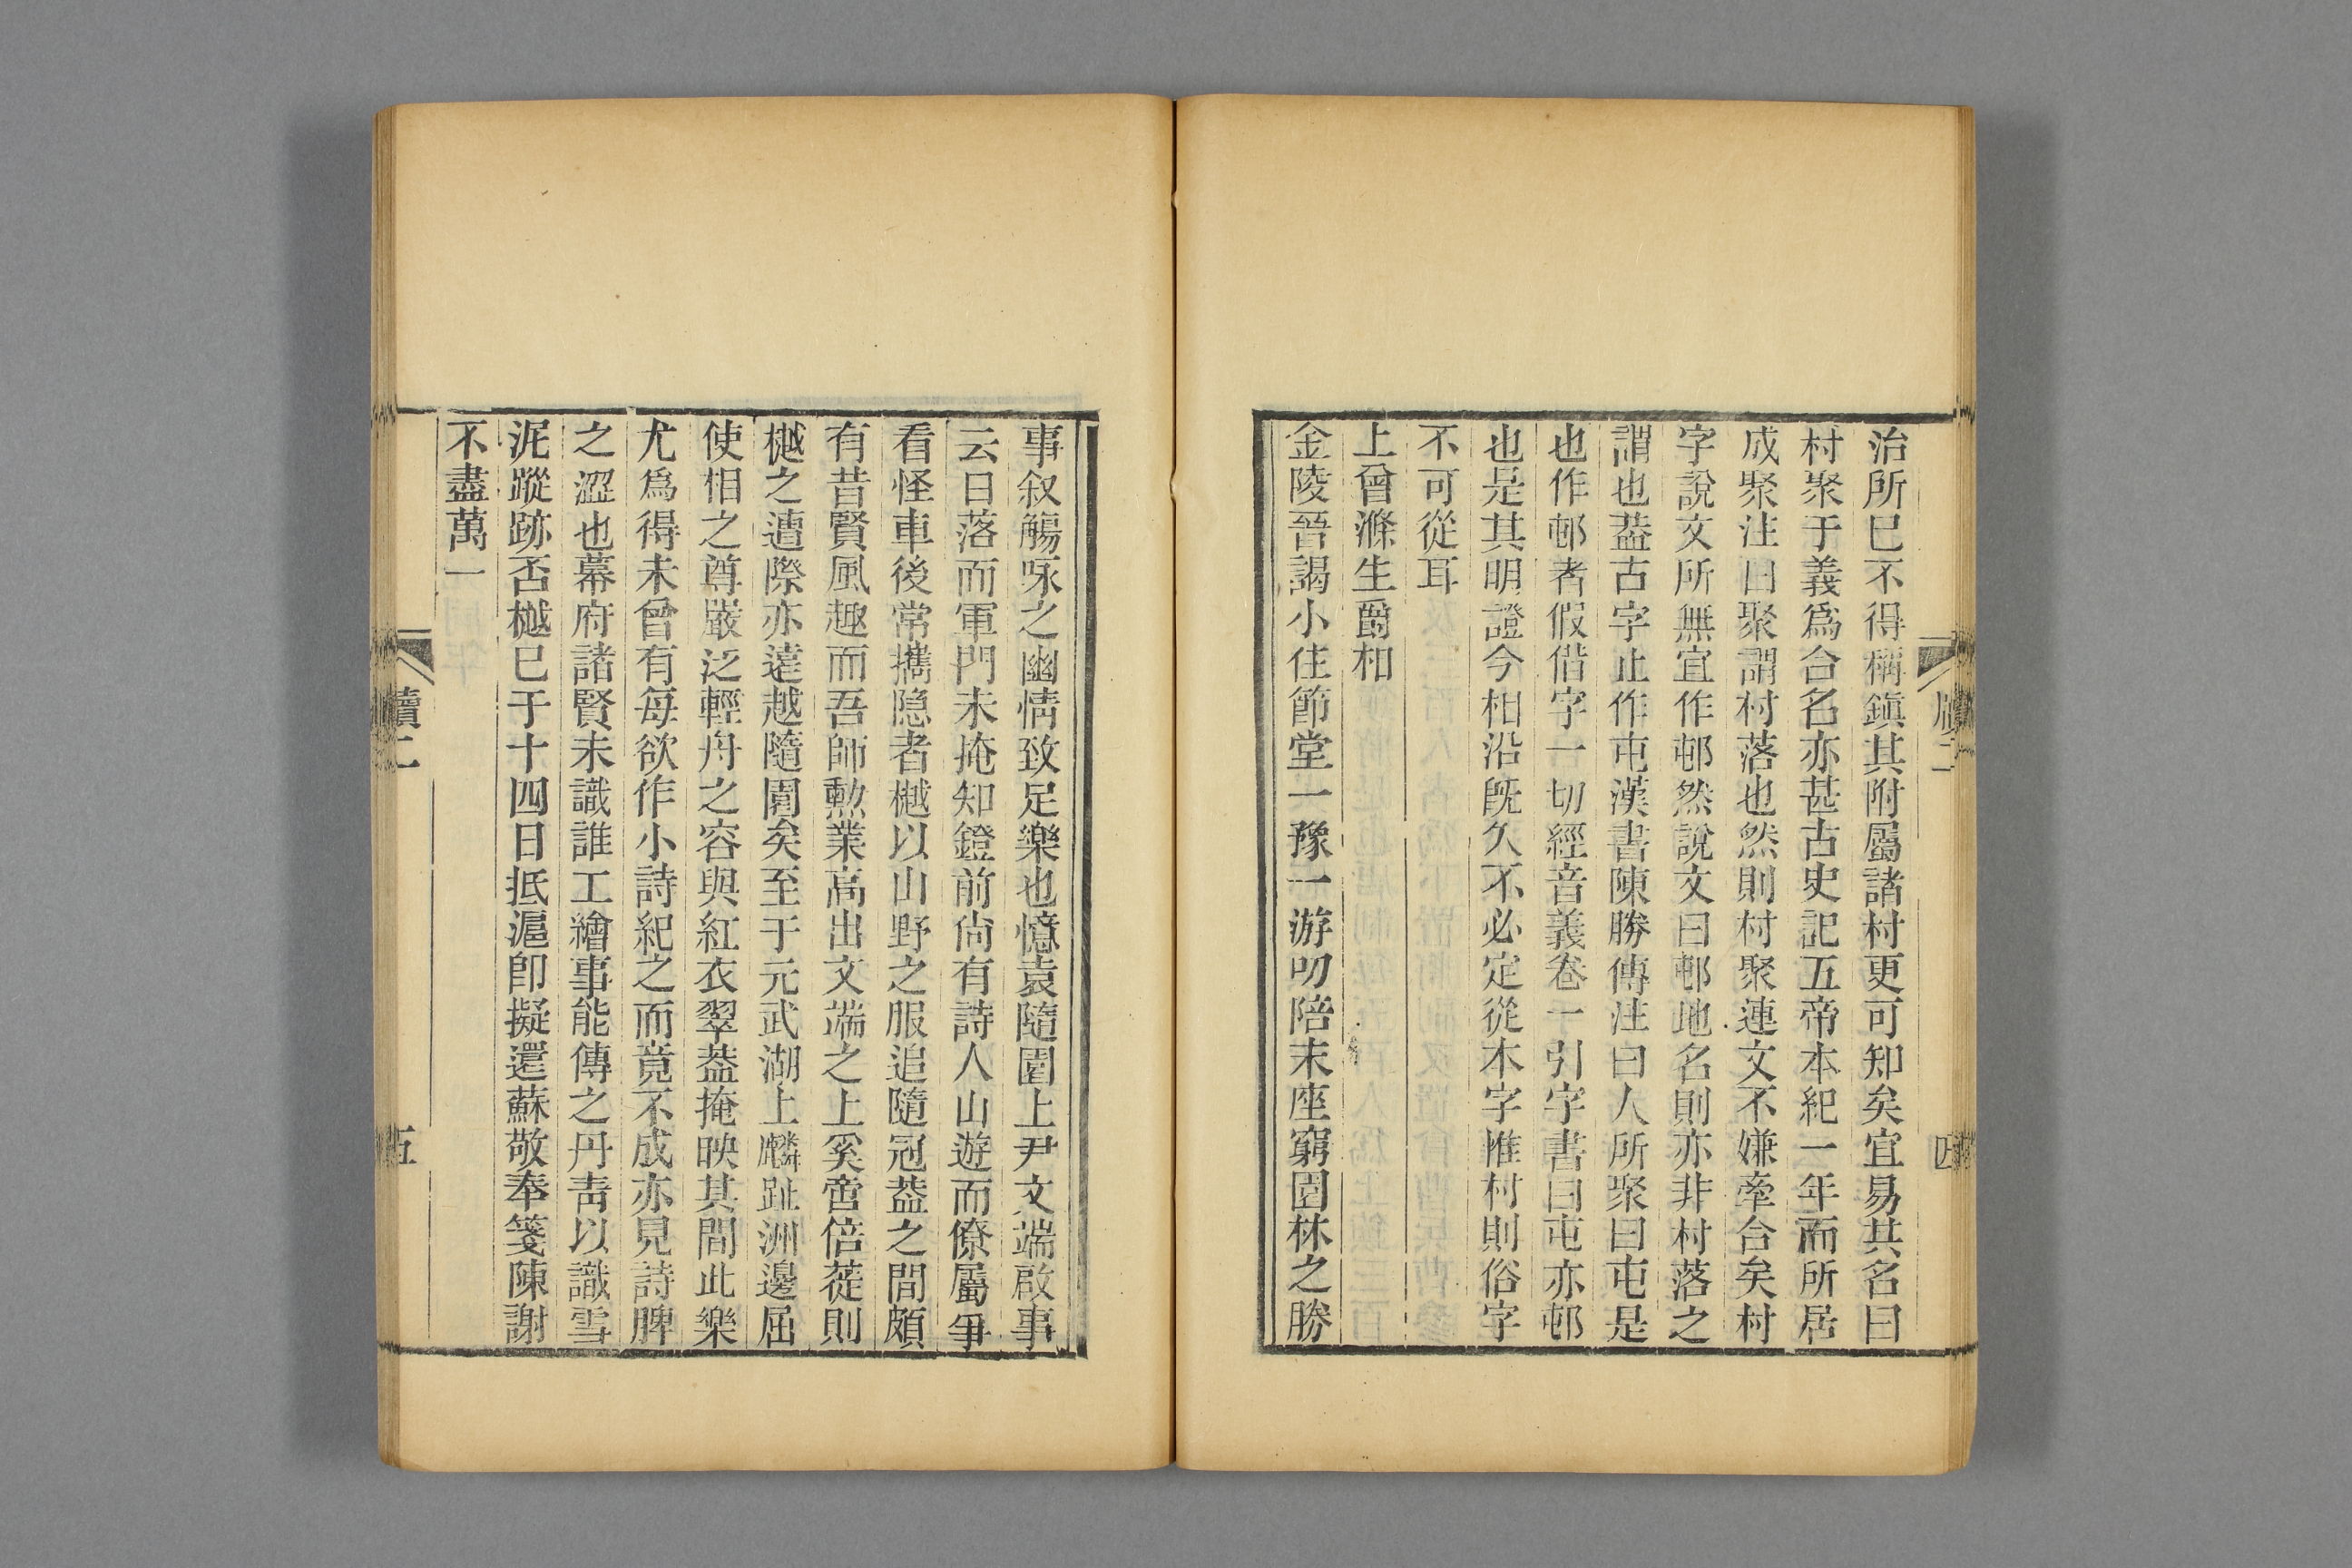 治所已不得稱鎭其附屬諸村更可知矣宜易其名曰
村聚于義爲合名亦甚古史記五帝本紀一年而所居
成聚注曰聚謂村落也然則村聚連文不嫌牽合矣村
字說文所無宜作邨然說文曰邨地名則亦非村落之
謂也葢古字止作屯漢書陳勝傳注曰人所聚曰屯是
也作邨者假偕字一切經音義卷一引字書曰屯亦邨
也是其明證今相沿旣久不必定從本字惟村則俗字
不可從耳
上曾滌生爵相
金陵晉謁小住節堂一豫一游叨陪末座窮園林之勝
事叙觴咏之幽情致足樂也憶袁隨園上尹文端啟事
云日落而軍門未掩知鐙前尙有詩人山遊而僚屬爭
看怪車後常攜隐者樾以山野之服追隨冠葢之間頗
有昔賢風趣而吾師勲業高出文端之上奚啻倍蓰則
樾之遭際亦遠越隨園矣至于元武湖上麟趾洲邊屈
使相之尊嚴泛輕舟之容與紅衣翠葢掩映其間此樂
尤爲得未曾有每欲作小詩紀之而竟不成亦見詩脾
之澀也幕府諸賢未識誰工繪事能傳之丹靑以識雪
泥蹤跡否樾已于十四日抵滬卽擬還蘇敬奉箋陳謝
不盡萬一
牘二
五